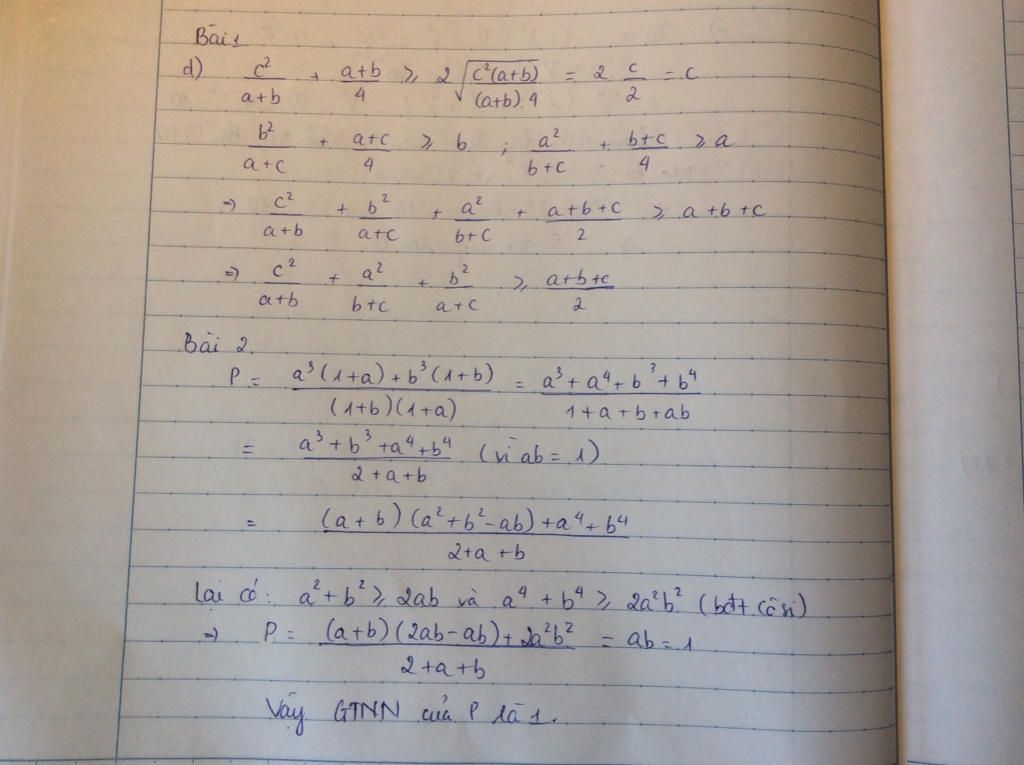 Bài 1
d) c²/(a+b) + (a+b)/4 ≥ 2√(c²(a+b)/((a+b).4)) = 2. c/2 = c
b²/(a+c) + (a+c)/4 ≥ b ; a²/(b+c) + (b+c)/4 ≥ a
=> c²/(a+b) + b²/(a+c) + a²/(b+c) + (a+b+c)/2 ≥ a+b+c
=> c²/(a+b) + a²/(b+c) + b²/(a+c) ≥ (a+b+c)/2
Bài 2.
P = (a³(1+a)+b³(1+b))/((1+b)(1+a)) = (a³+a⁴+b³+b⁴)/(1+a+b+ab)
= (a³+b³+a⁴+b⁴)/(2+a+b) (vì ab=1)
= ((a+b)(a²+b²-ab)+a⁴+b⁴)/(2+a+b)
Lại có: a²+b² ≥ 2ab và a⁴+b⁴ ≥ 2a²b² (bđt cô si)
=> P = ((a+b)(2ab-ab)+2a²b²)/(2+a+b) = ab = 1
Vậy GTNN của P là 1.